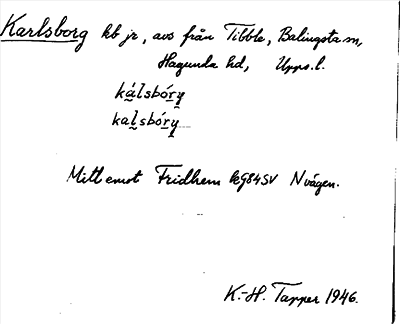 Karlsborg kb jr, avs från Tibble, Balingsta sn,
Hagunda hd, Upps. l.
kálsbóry
kalsbóry
Mitt emot Fridhem kg84SV N vägen.
K.-H. Tapper 1946.